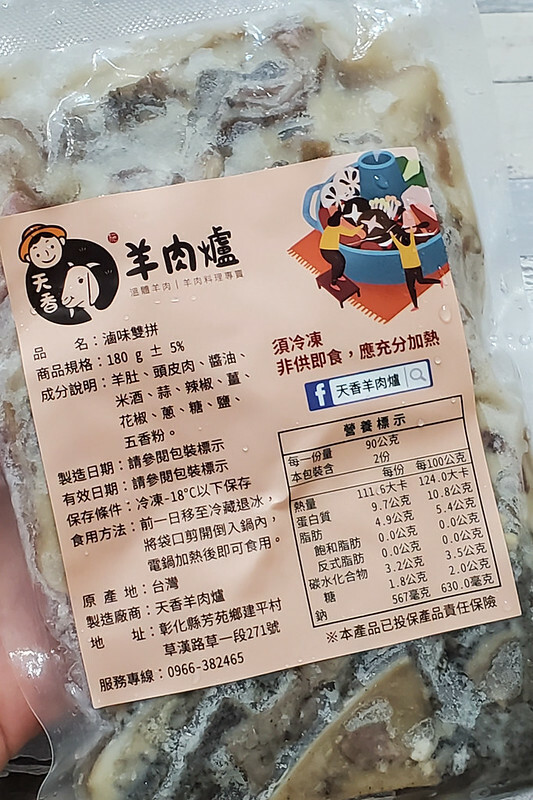 天香
羊肉爐
溫體羊肉｜羊肉料理專賣
品　　名：滷味雙拼
商品規格：180 g ± 5%
成分說明：羊肚、頭皮肉、醬油、
米酒、蒜、辣椒、薑、
花椒、蔥、糖、鹽、
五香粉。
製造日期：請參閱包裝標示
有效日期：請參閱包裝標示
保存條件：冷凍-18°C以下保存
食用方法：前一日移至冷藏退冰，
將袋口剪開倒入鍋內，
電鍋加熱後即可食用。
原 產 地：台灣
製造廠商：天香羊肉爐
地　　址：彰化縣芳苑鄉建平村
草漢路草一段271號
服務專線：0966-382465
須冷凍
非供即食，應充分加熱
f 天香羊肉爐
營養標示
每一份量 90公克
本包裝含 2份
每份 每100公克
熱量 111.6大卡 124.0大卡
蛋白質 9.7公克 10.8公克
脂肪 4.9公克 5.4公克
飽和脂肪 0.0公克 0.0公克
反式脂肪 0.0公克 0.0公克
碳水化合物 3.2公克 3.5公克
糖 1.8公克 2.0公克
鈉 567毫克 630.0毫克
※本產品已投保產品責任保險